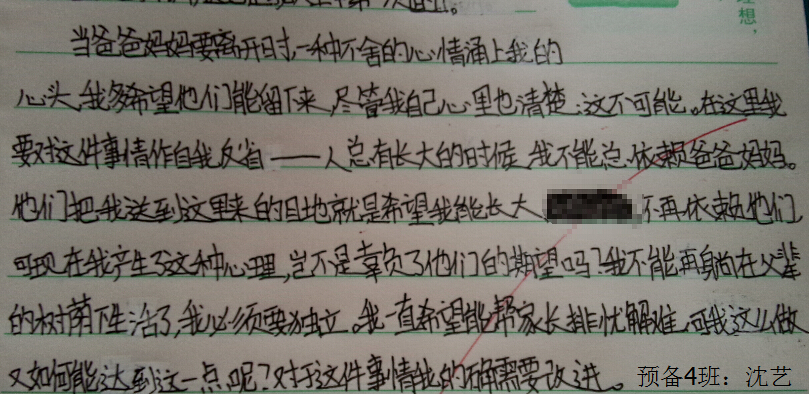 理想，
当爸爸妈妈要离开时，一种不舍的心情涌上我的
心头，我多希望他们能留下来，尽管我自己心里也清楚：这不可能。在这里我
要对这件事情作自我反省——人总有长大的时候，我不能总依赖爸爸妈妈。
他们把我送到这里来的目地就是希望我能长大，不再依赖他们，
可现在我产生了这种心理，岂不是辜负了他们的期望吗？我不能再躺在父辈
的树荫下生活了，我必须要独立。我一直希望能帮家长排忧解难，可我这么做
又如何能达到这一点呢？对于这件事情我的确需要改进。
预备4班：沈艺